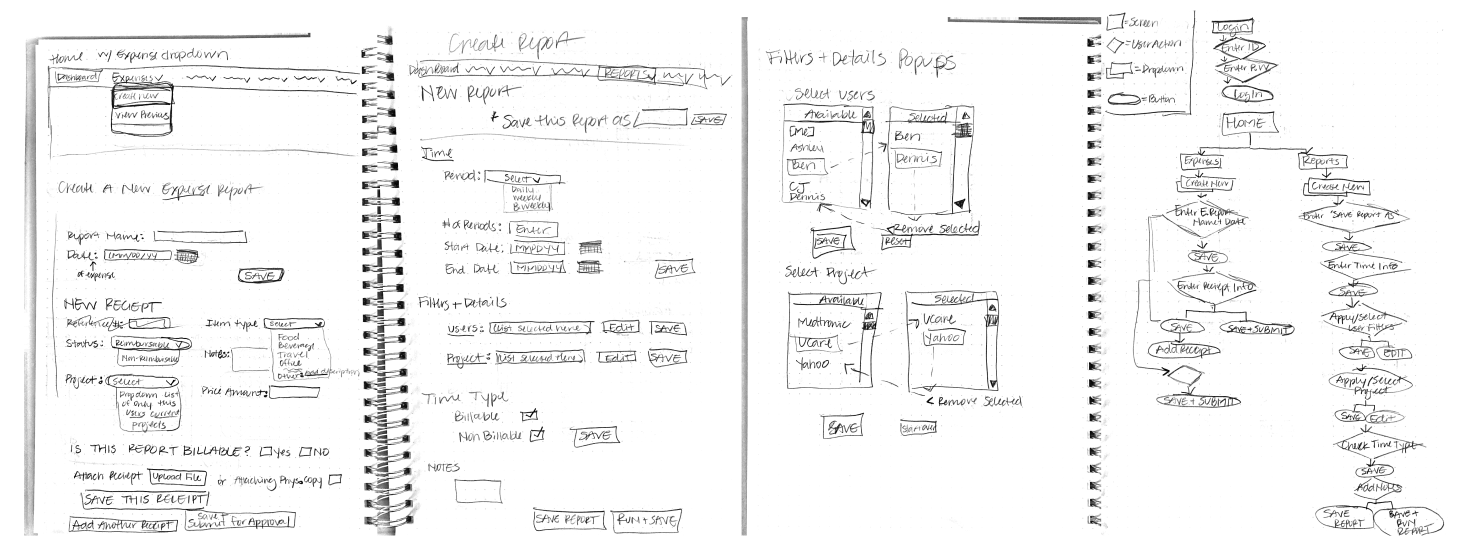 Home w/ Expense dropdown
Dashboard Expenses
Create New
View Previous
Create A New Expense Report
Report Name:
Date: MM/DD/YY
of expense
SAVE
NEW RECIEPT
Reference/#:
Item type Select
Food
Beverage
Travel
Office
Other: add description
Status: Reimbursable
Non-Reimbursable
Notes:
Project: Select
Dropdown list
of only this
users current
projects
Price Amount:
IS THIS REPORT BILLABLE? Yes NO
Attach Reciept Upload File or Attaching Phys. Copy
SAVE THIS RECEIPT
Add Another Reciept
Save +
Submit for Approval
Create Report
Dashboard REPORTS
NEW Report
* Save this Report as SAVE
Time
Period: Select
Daily
Weekly
Biweekly
# of Periods: Enter
Start Date: MMDDYY
End Date MMDDYY SAVE
Filters + Details
Users: (list selected here) Edit SAVE
Project: (list selected here) Edit SAVE
Time Type
Billable
Non Billable SAVE
NOTES
SAVE REPORT RUN + SAVE
Filters + Details Popups
Select Users
Available
[Me]
Ashley
Ben
CJ
Dennis
Selected
Ben
Dennis
< Remove Selected
SAVE RESET
Select Project
Available
Medtronic
UCare
Yahoo
Selected
UCare
Yahoo
< Remove Selected
SAVE Start over
= Screen
= User Action
= Dropdown
= Button
Login
Enter ID
Enter P.W
Log In
HOME
Expenses
Create New
Enter E.Report
Name + Date
SAVE
Enter Reciept Info
SAVE SAVE + SUBMIT
Add Reciept
SAVE + SUBMIT
Reports
Create New
Enter "SAVE Report As"
SAVE
Enter Time Info
SAVE
Apply/Select
User Filters
SAVE EDIT
Apply/Select
Project
SAVE Edit
Check Time Type
SAVE
Add Notes
SAVE
REPORT
SAVE +
RUN
REPORT